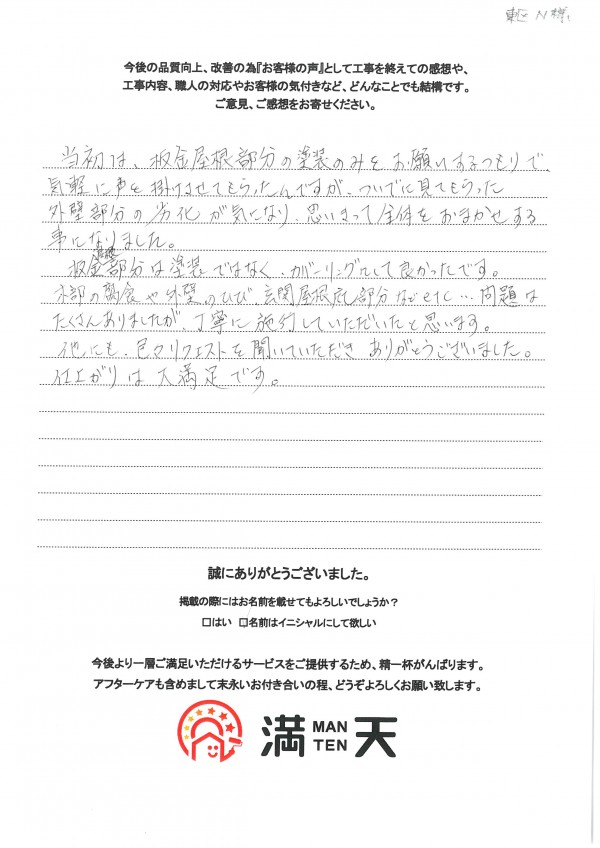 東区 N様
今後の品質向上、改善の為『お客様の声』として工事を終えての感想や、
工事内容、職人の対応やお客様の気付きなど、どんなことでも結構です。
ご意見、ご感想をお寄せください。
当初は、板金屋根部分の塗装のみをお願いするつもりで、
気軽に声を掛けさせてもらったんですが、ついでに見てもらった
外壁部分の劣化が気になり、思いきって全体をおまかせする
事になりました。
板金部分は塗装ではなく、カバーリングにして良かったです。
木部の腐食や外壁のひび、玄関屋根底部分などetc…問題は
たくさんありましたが、丁寧に施行していただいたと思います。
他にも、色々リクエストを聞いていただきありがとうございました。
仕上がりは大満足です。
誠にありがとうございました。
掲載の際にはお名前を載せてもよろしいでしょうか？
□はい □名前はイニシャルにして欲しい
今後より一層ご満足いただけるサービスをご提供するため、精一杯がんばります。
アフターケアも含めまして末永いお付き合いの程、どうぞよろしくお願い致します。
満 MAN TEN 天